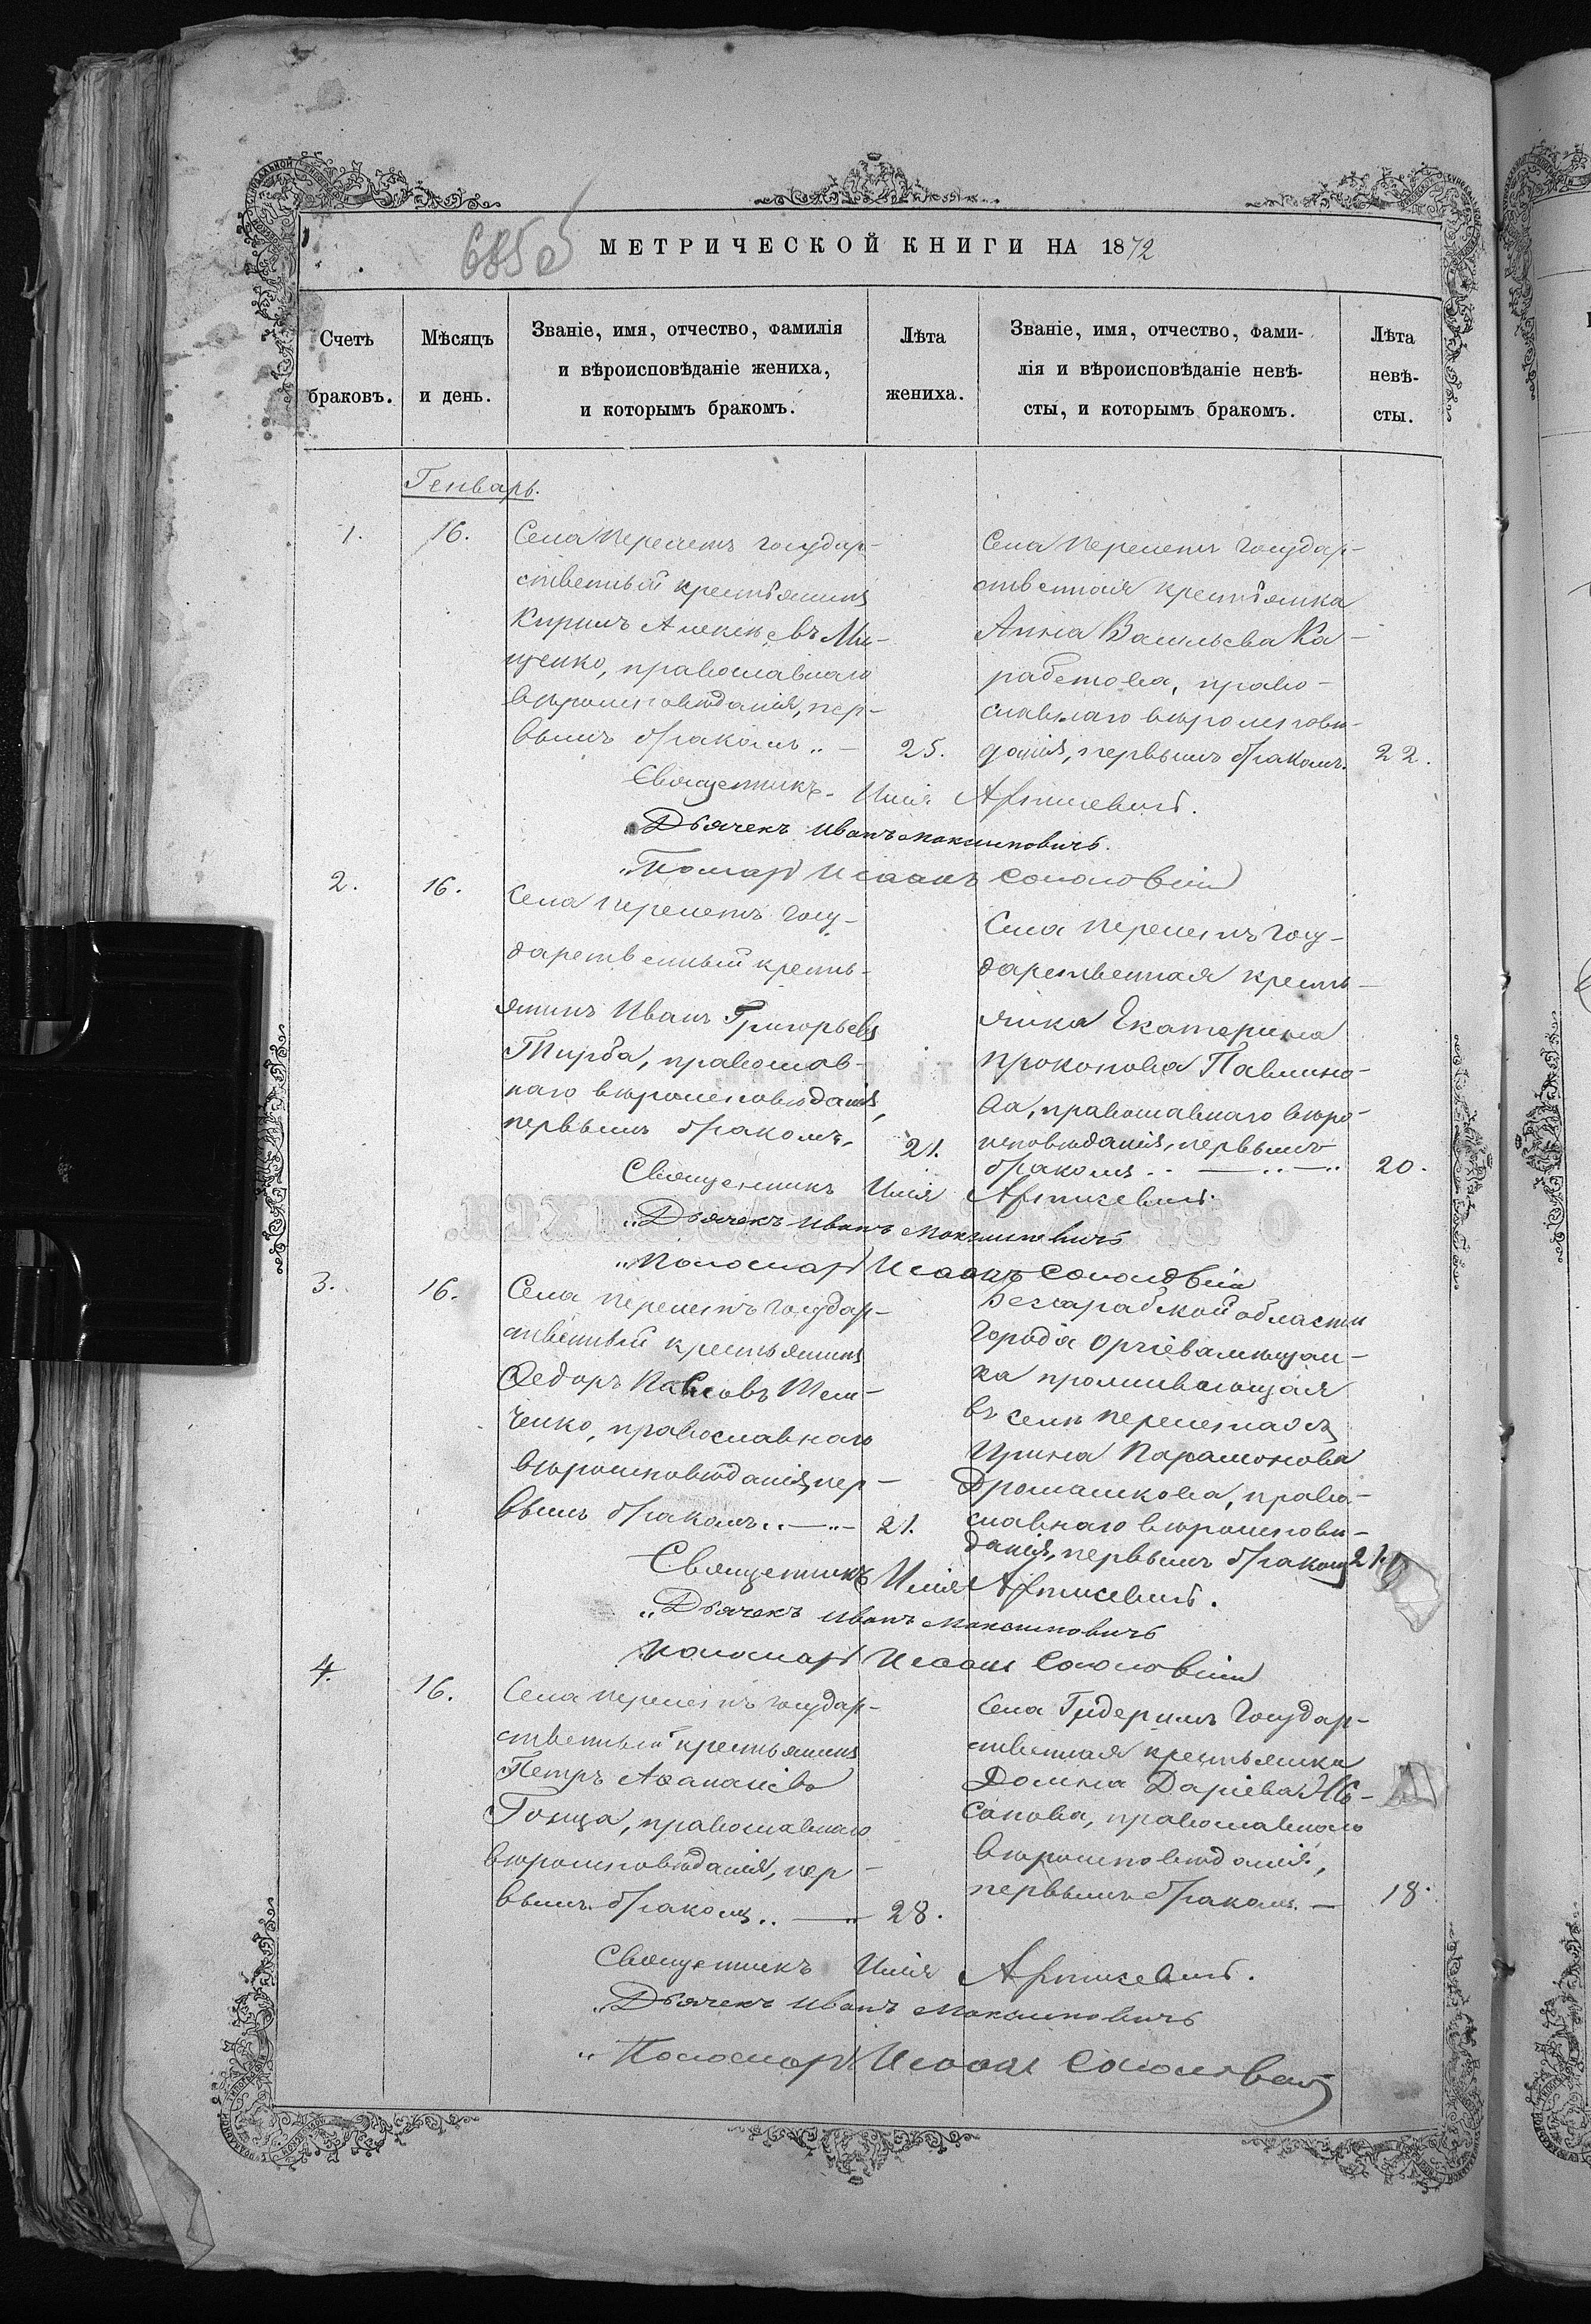 685 об
МЕТРИЧЕСКОЙ КНИГИ НА 1872
Счетъ браковъ.
Мѣсяцъ и день.
Званіе, имя, отчество, фамилія
и вѣроисповѣданіе жениха,
и которымъ бракомъ.
Лѣта жениха.
Званіе, имя, отчество, фами-
лія и вѣроисповѣданіе невѣ-
сты, и которымъ бракомъ.
Лѣта невѣ-
сты.
Генварь.
1.
16.
Села Перелетъ государ-
ственный крестьянинъ
Кирилъ Алексѣевъ Ми-
щенко, православнаго
вѣроисповѣданія, пер-
вымъ бракомъ
25.
Села Перелетъ государ-
ственная крестьянка
Анна Васильева Ка-
рабетова, право-
славнаго вѣроисповѣ-
данія, первымъ бракомъ.
22.
Священникъ Илія Артисевичъ.
Дьячекъ Иванъ Максимовичъ.
Пономарь Исаакъ Соколовскій
2.
16.
Села Перелетъ госу-
дарственный кресть-
янинъ Иванъ Григорьевъ
Тирба, православ-
наго вѣроисповѣданія,
первымъ бракомъ,
21.
Села Перелетъ госу-
дарственная кресть-
янка Екатерина
Прокопова Павлино-
ва, православнаго вѣро-
исповѣданія, первымъ
бракомъ
20.
Священникъ Илія Артисевичъ.
Дьячекъ Иванъ Максимовичъ
Пономарь Исаакъ Соколовскій
3.
16.
Села Перелетъ государ-
ственный крестьянинъ
Ѳедоръ Павловъ Шев-
ченко, православнаго
вѣроисповѣданія, пер-
вымъ бракомъ
21.
Бессарабской области
города Оргѣева мѣщан-
ка проживающая
въ селѣ Перелетахъ
Ирина Парамонова
Дромашкова, право-
славнаго вѣроисповѣ-
данія, первымъ бракомъ
21.
Священникъ Илія Артисевичъ.
Дьячекъ Иванъ Максимовичъ
Пономарь Исаакъ Соколовскій
4.
16.
Села Перелетъ государ-
ственный крестьянинъ
Петръ Аѳанасіевъ
Гонца, православнаго
вѣроисповѣданія, пер-
вымъ бракомъ
28.
Села Гидеримъ государ-
ственная крестьянка
Домна Даріева
православнаго
вѣроисповѣданія,
первымъ бракомъ
18.
Священникъ Илія Артисевичъ.
Дьячекъ Иванъ Максимовичъ
Пономарь Исаакъ Соколовскій